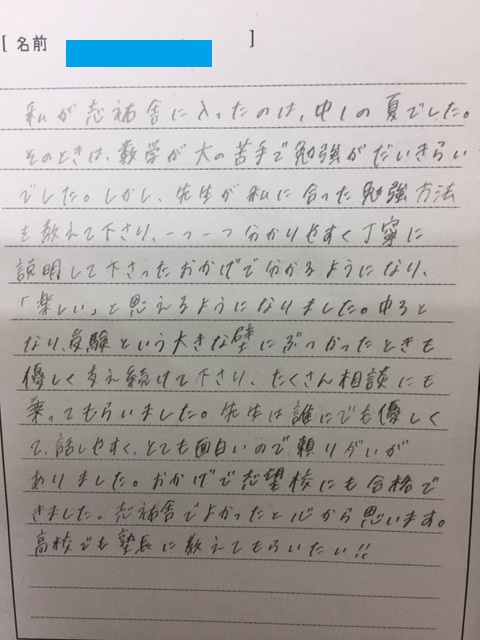 [ 名前 ]
私が志補舎に入ったのは、中1の夏でした。
そのときは、数学が大の苦手で勉強がだいきらい
でした。しかし、先生が私に合った勉強方法
を教えて下さり、一つ一つ分かりやすく丁寧に
説明して下さったおかげで分かるようになり、
「楽しい」と思えるようになりました。中3と
なり、受験という大きな壁にぶつかったときも
優しく支え続けて下さり、たくさん相談にも
乗ってもらいました。先生は誰にでも優しく
て、話しやすく、とても面白いので頼りがいが
ありました。おかげで志望校にも合格で
きました。志補舎でよかったと心から思います。
高校でも塾長に教えてもらいたい!!